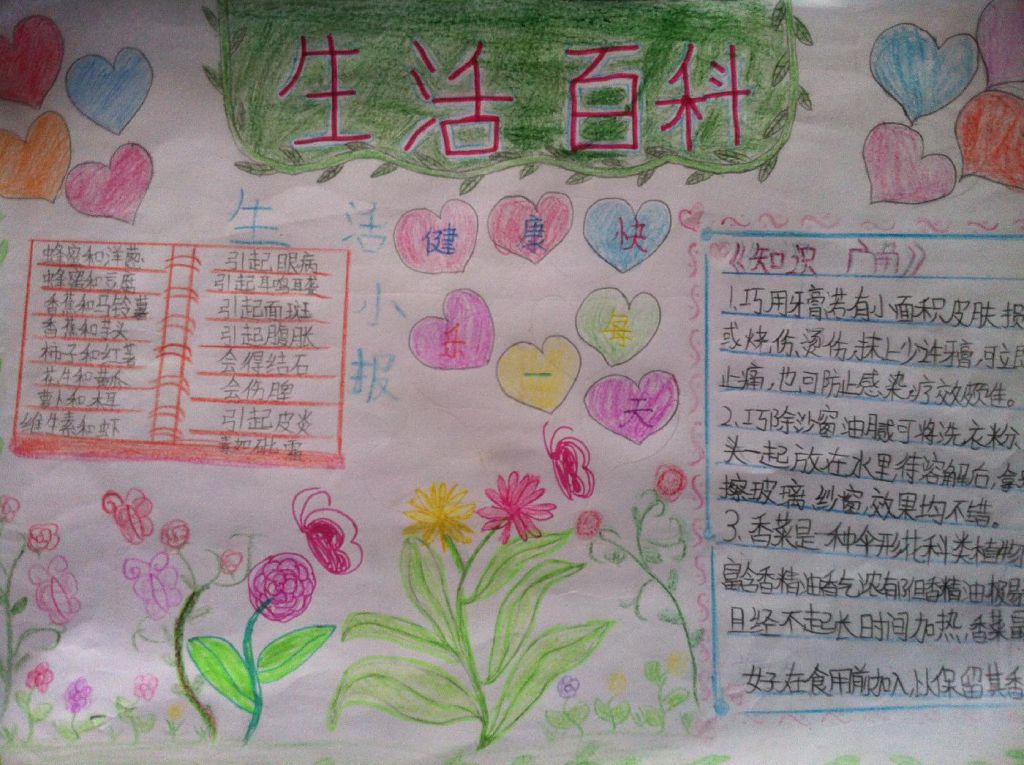 生活百科
生活小报
健康快
乐每
一天
蜂蜜和洋葱 引起眼病
蜂蜜和豆腐 引起耳鸣耳聋
香蕉和马铃薯 引起面斑
香蕉和芋头 引起腹胀
柿子和红薯 会得结石
花生和黄瓜 会伤脾
萝卜和木耳 引起皮炎
维生素和虾
《知识 广南》
1.巧用牙膏:若有小面积皮肤损
或烧伤、烫伤,抹上少许牙膏,可立即
止痛,也可防止感染,疗效颇佳。
2.巧除沙窗油腻可将洗衣粉、
头一起放在水里待溶解后,拿
擦玻璃、纱窗,效果均不错。
3.香菜是一种伞形花科类植物
富含香精油香气浓有但香精油极易
且经不起长时间加热,香菜最
在食用前加入,以保留其香